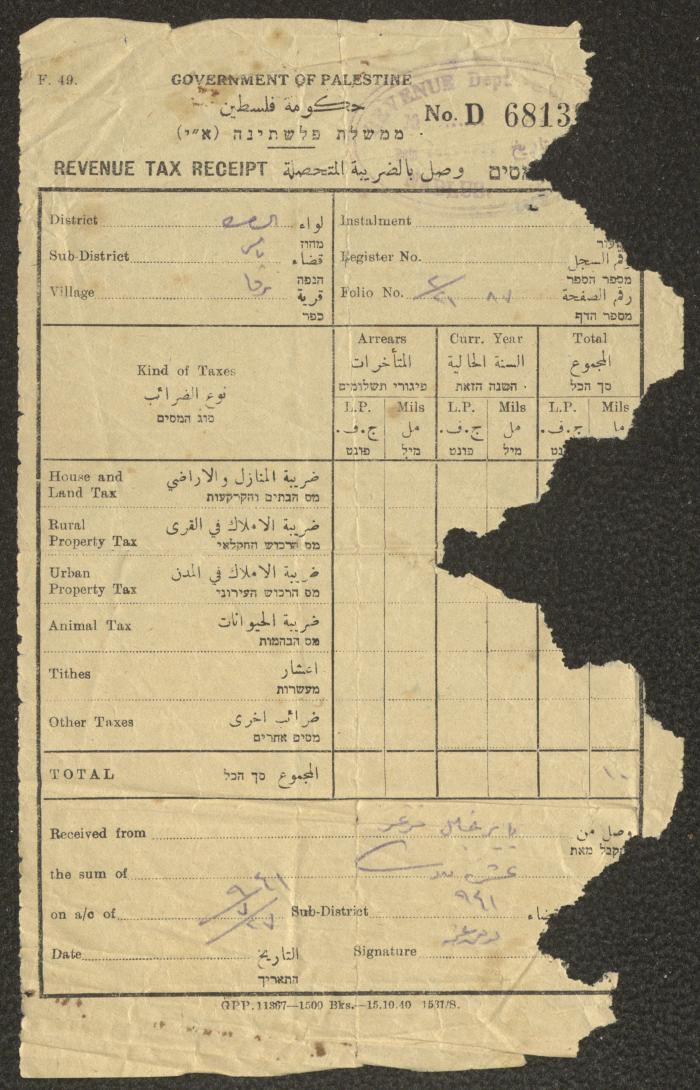 F. 49.
GOVERNMENT OF PALESTINE
حكومة فلسطين
ממשלת פלשתינה (א״י)
No. D 6813
REVENUE Dept.
REVENUE TAX RECEIPT وصل بالضريبة المتحصلة
District لواء
מחוז
Sub-District قضاء
הנפה
Village قرية
כפר
Instalment
Register No. رقم السجل
מספר הספר
Folio No. رقم الصفحة
מספר הדף
Kind of Taxes
نوع الضرائب
סוג המסים
Arrears
المتأخرات
פיגורי תשלומים
Curr. Year
السنة الحالية
השנה הזאת
Total
المجموع
סך הכל
L.P. Mils L.P. Mils L.P. Mils
ج.ف. مل ج.ف. مل ج.ف.
פונט מיל פונט מיל
House and ضريبة المنازل والاراضي
Land Tax מס הבתים והקרקעות
Rural ضريبة الاملاك في القرى
Property Tax מס הרכוש החקלאי
Urban ضريبة الاملاك في المدن
Property Tax מס הרכוש העירוני
Animal Tax ضريبة الحيوانات
מס הבהמות
Tithes اعشار
מעשרות
Other Taxes ضرائب اخرى
מסים אחרים
TOTAL المجموع סך הכל ١٠
Received from وصل من
the sum of
on a/c of Sub-District ٩٤١
Date التاريخ
התאריך
Signature
GPP. 11367—1500 Bks.—15.10.40 1531/S.